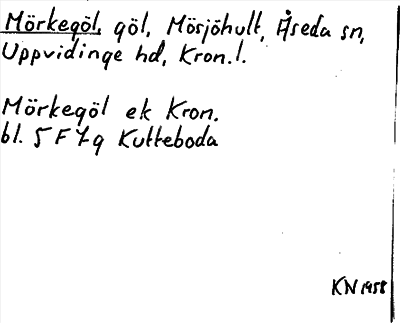 Mörkegöl, göl, Mösjöhult, Åseda sn,
Uppvidinge hd, Kron.l.
Mörkegöl ek Kron.
bl. 5 F 7g Kutteboda
KN 1958